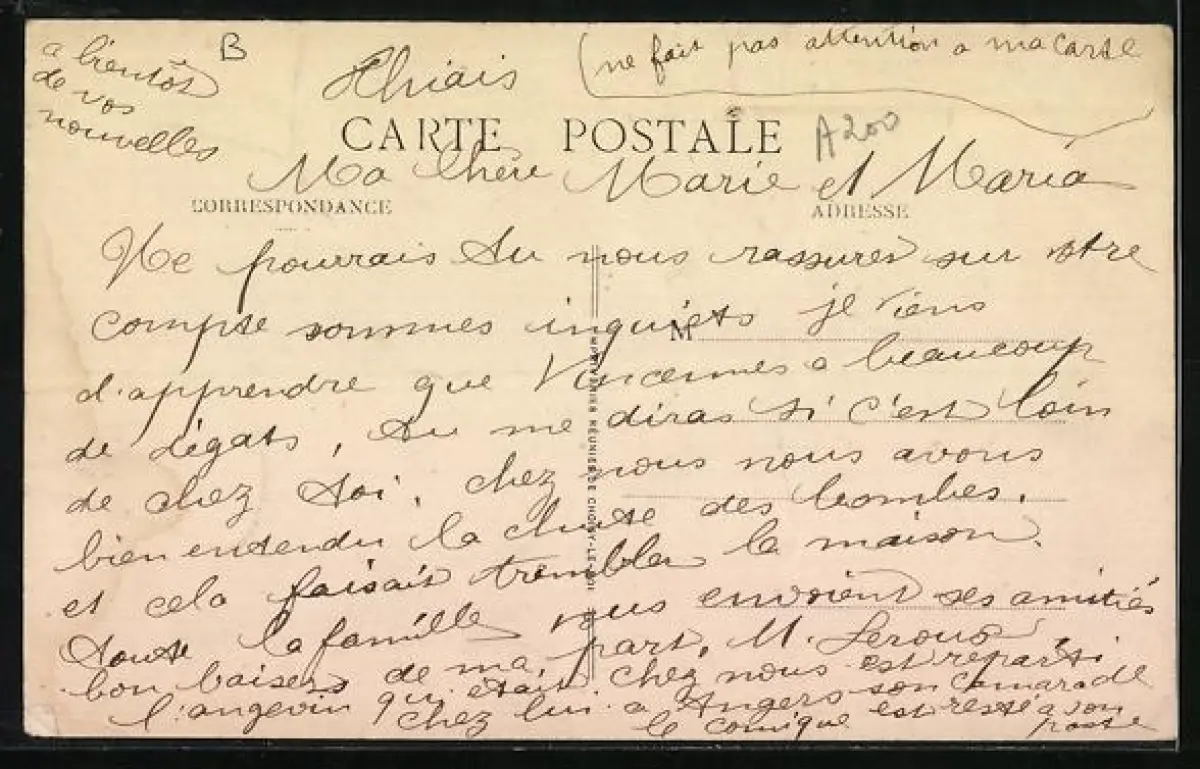 a bientôt
de vos
nouvelles
B
Thiais
(ne fait pas attention a ma carte
CARTE POSTALE
A200
Ma Chère Marie et Maria
CORRESPONDANCE
ADRESSE
Ne pourrais tu nous rassurer sur votre
compte sommes inquiets je viens
M
d'apprendre que Vincennes a beaucoup
de dégats, tu me diras si c'est loin
de chez toi. chez nous nous avons
bien entendu la chute des bombes.
et cela faisait trembler la maison.
toute la famille vous envoient ses amitiés
bon baisers de ma part, M. Leroux
l'angevin qui était chez nous est reparti
chez lui a Angers son camarade
le comique est resté a son
poste
IMPRIMERIES RÉUNIES DE CHOISY-LE-ROI